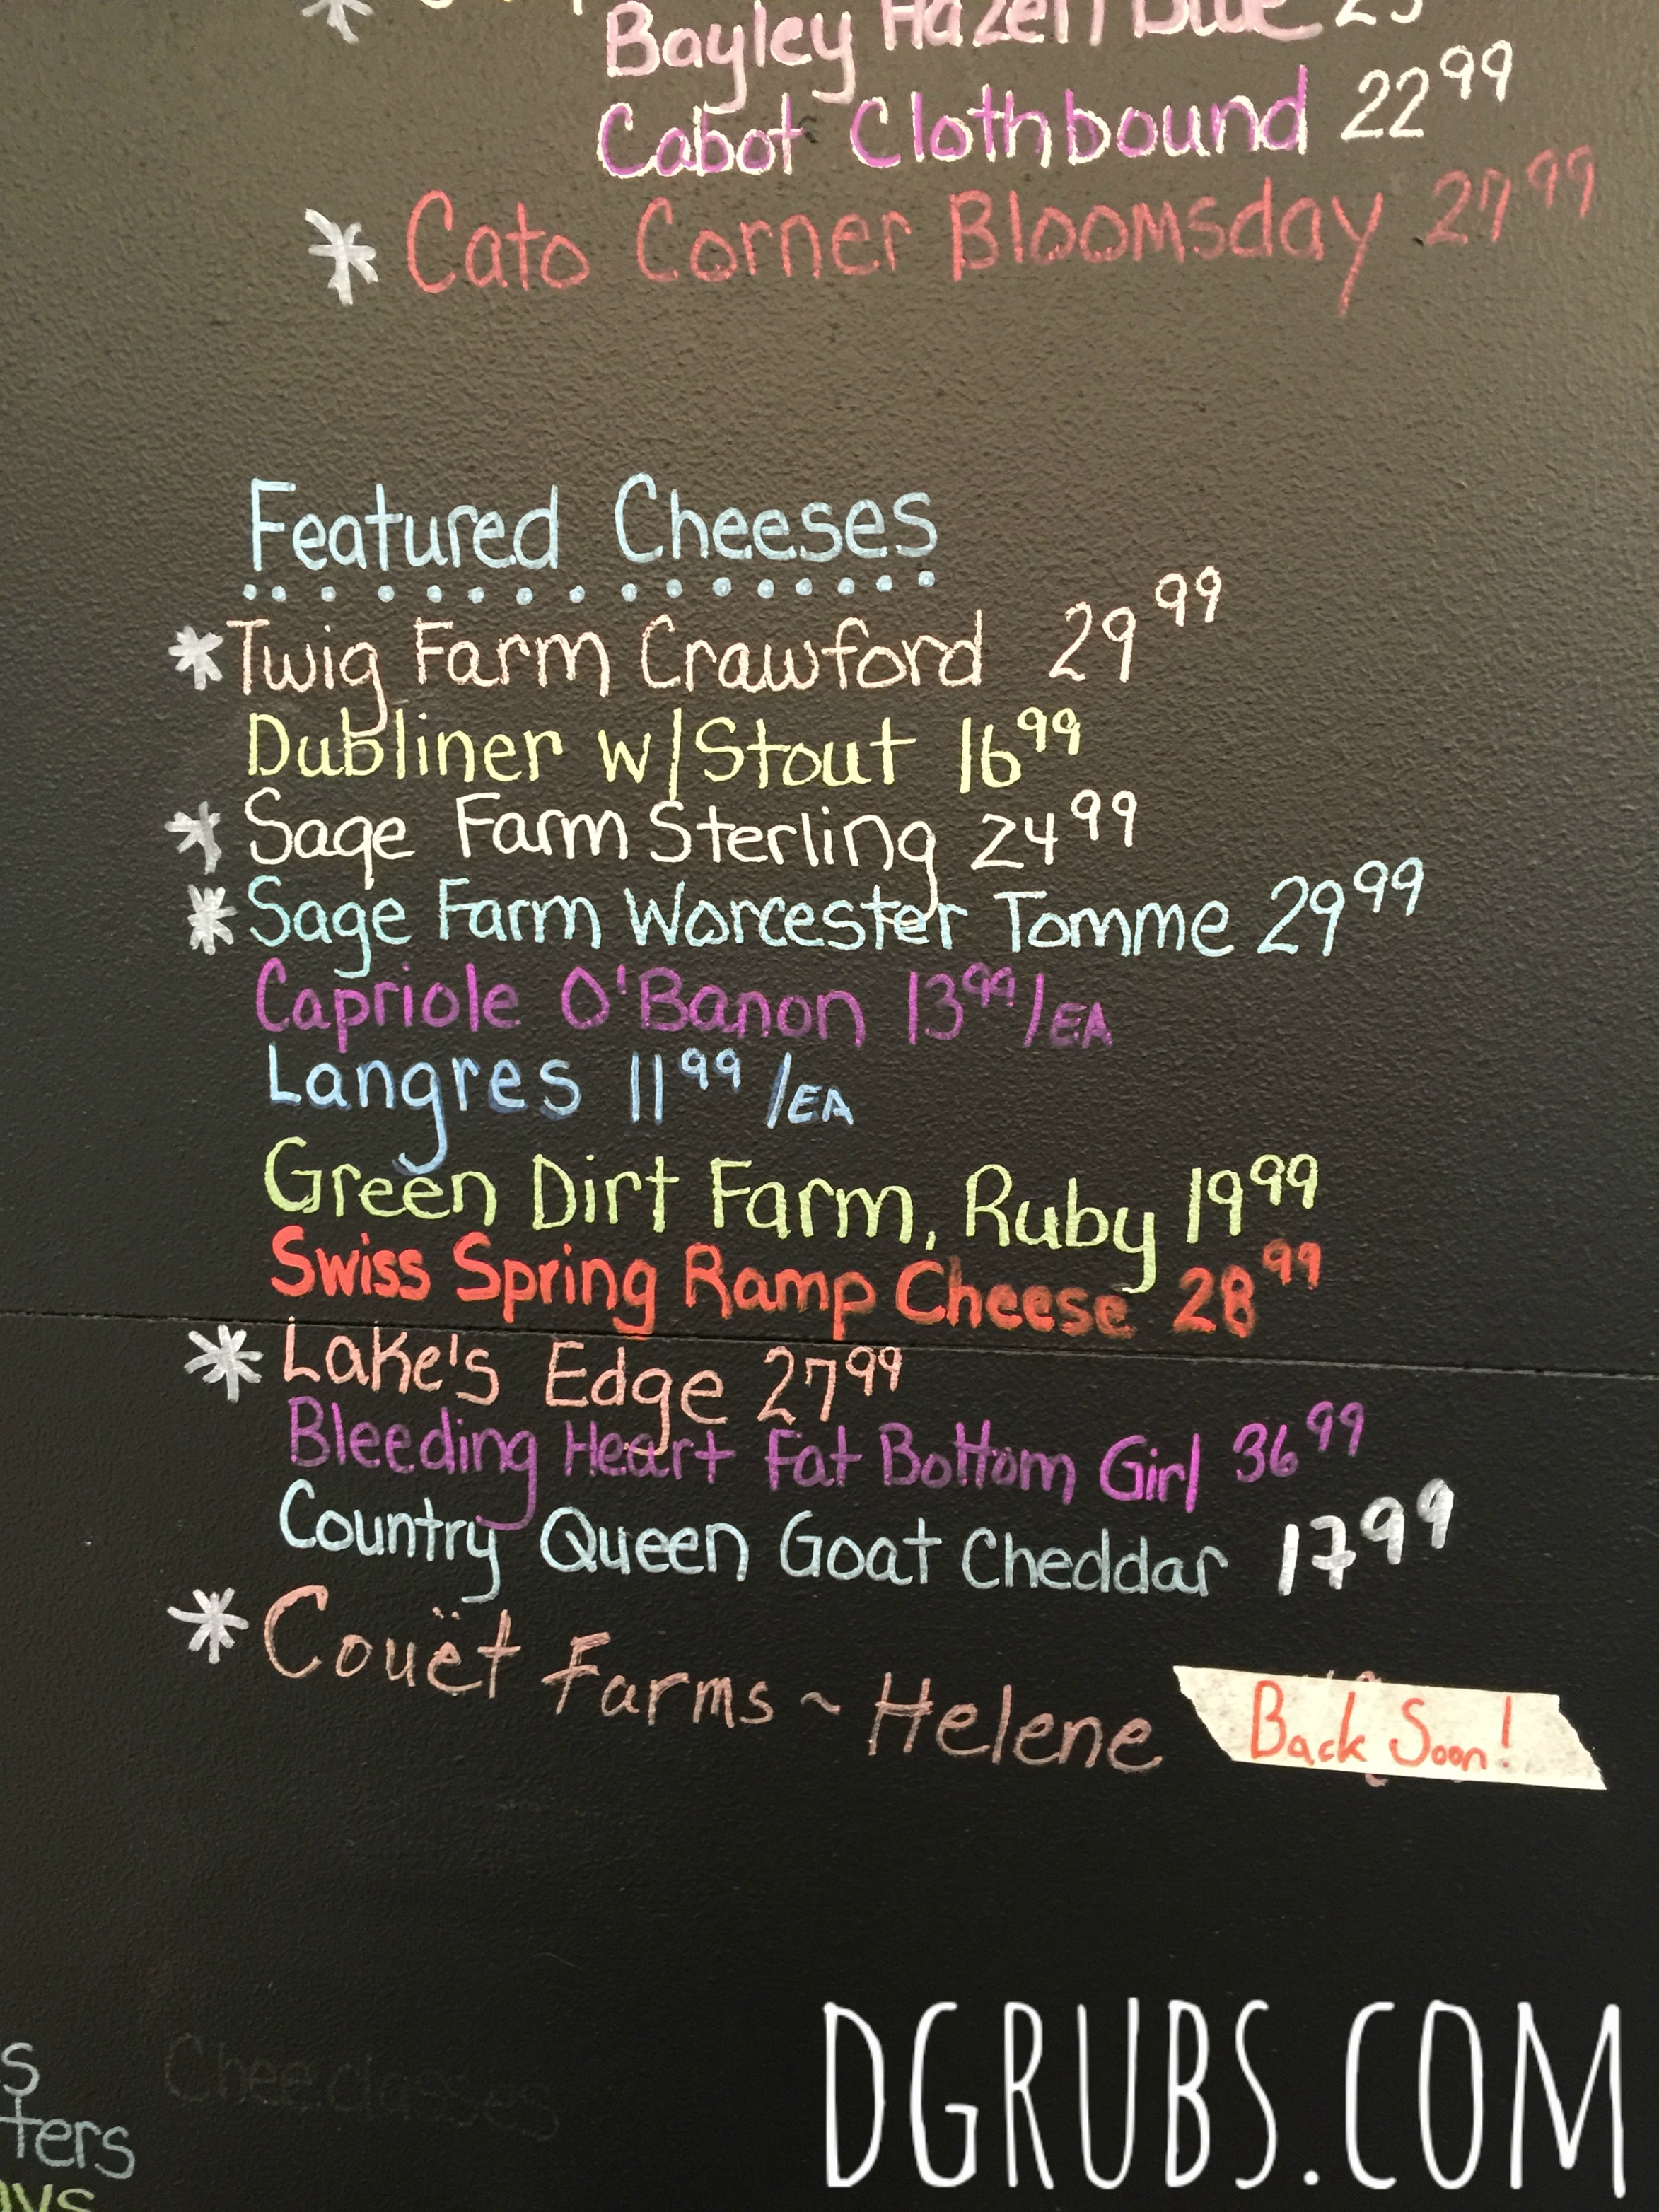 Bayley Hazen Blue
Cabot Clothbound 22 99
* Cato Corner Bloomsday 27 99
Featured Cheeses
* Twig Farm Crawford 29 99
Dubliner w/Stout 16 99
* Sage Farm Sterling 24 99
* Sage Farm Worcester Tomme 29 99
Capriole O'Banon 13 99 /EA
Langres 11 99 /EA
Green Dirt Farm, Ruby 19 99
Swiss Spring Ramp Cheese 28 99
* Lake's Edge 27 99
Bleeding Heart Fat Bottom Girl 36 99
Country Queen Goat Cheddar 17 99
* Couët Farms ~ Helene Back Soon!
DGRUBS.COM